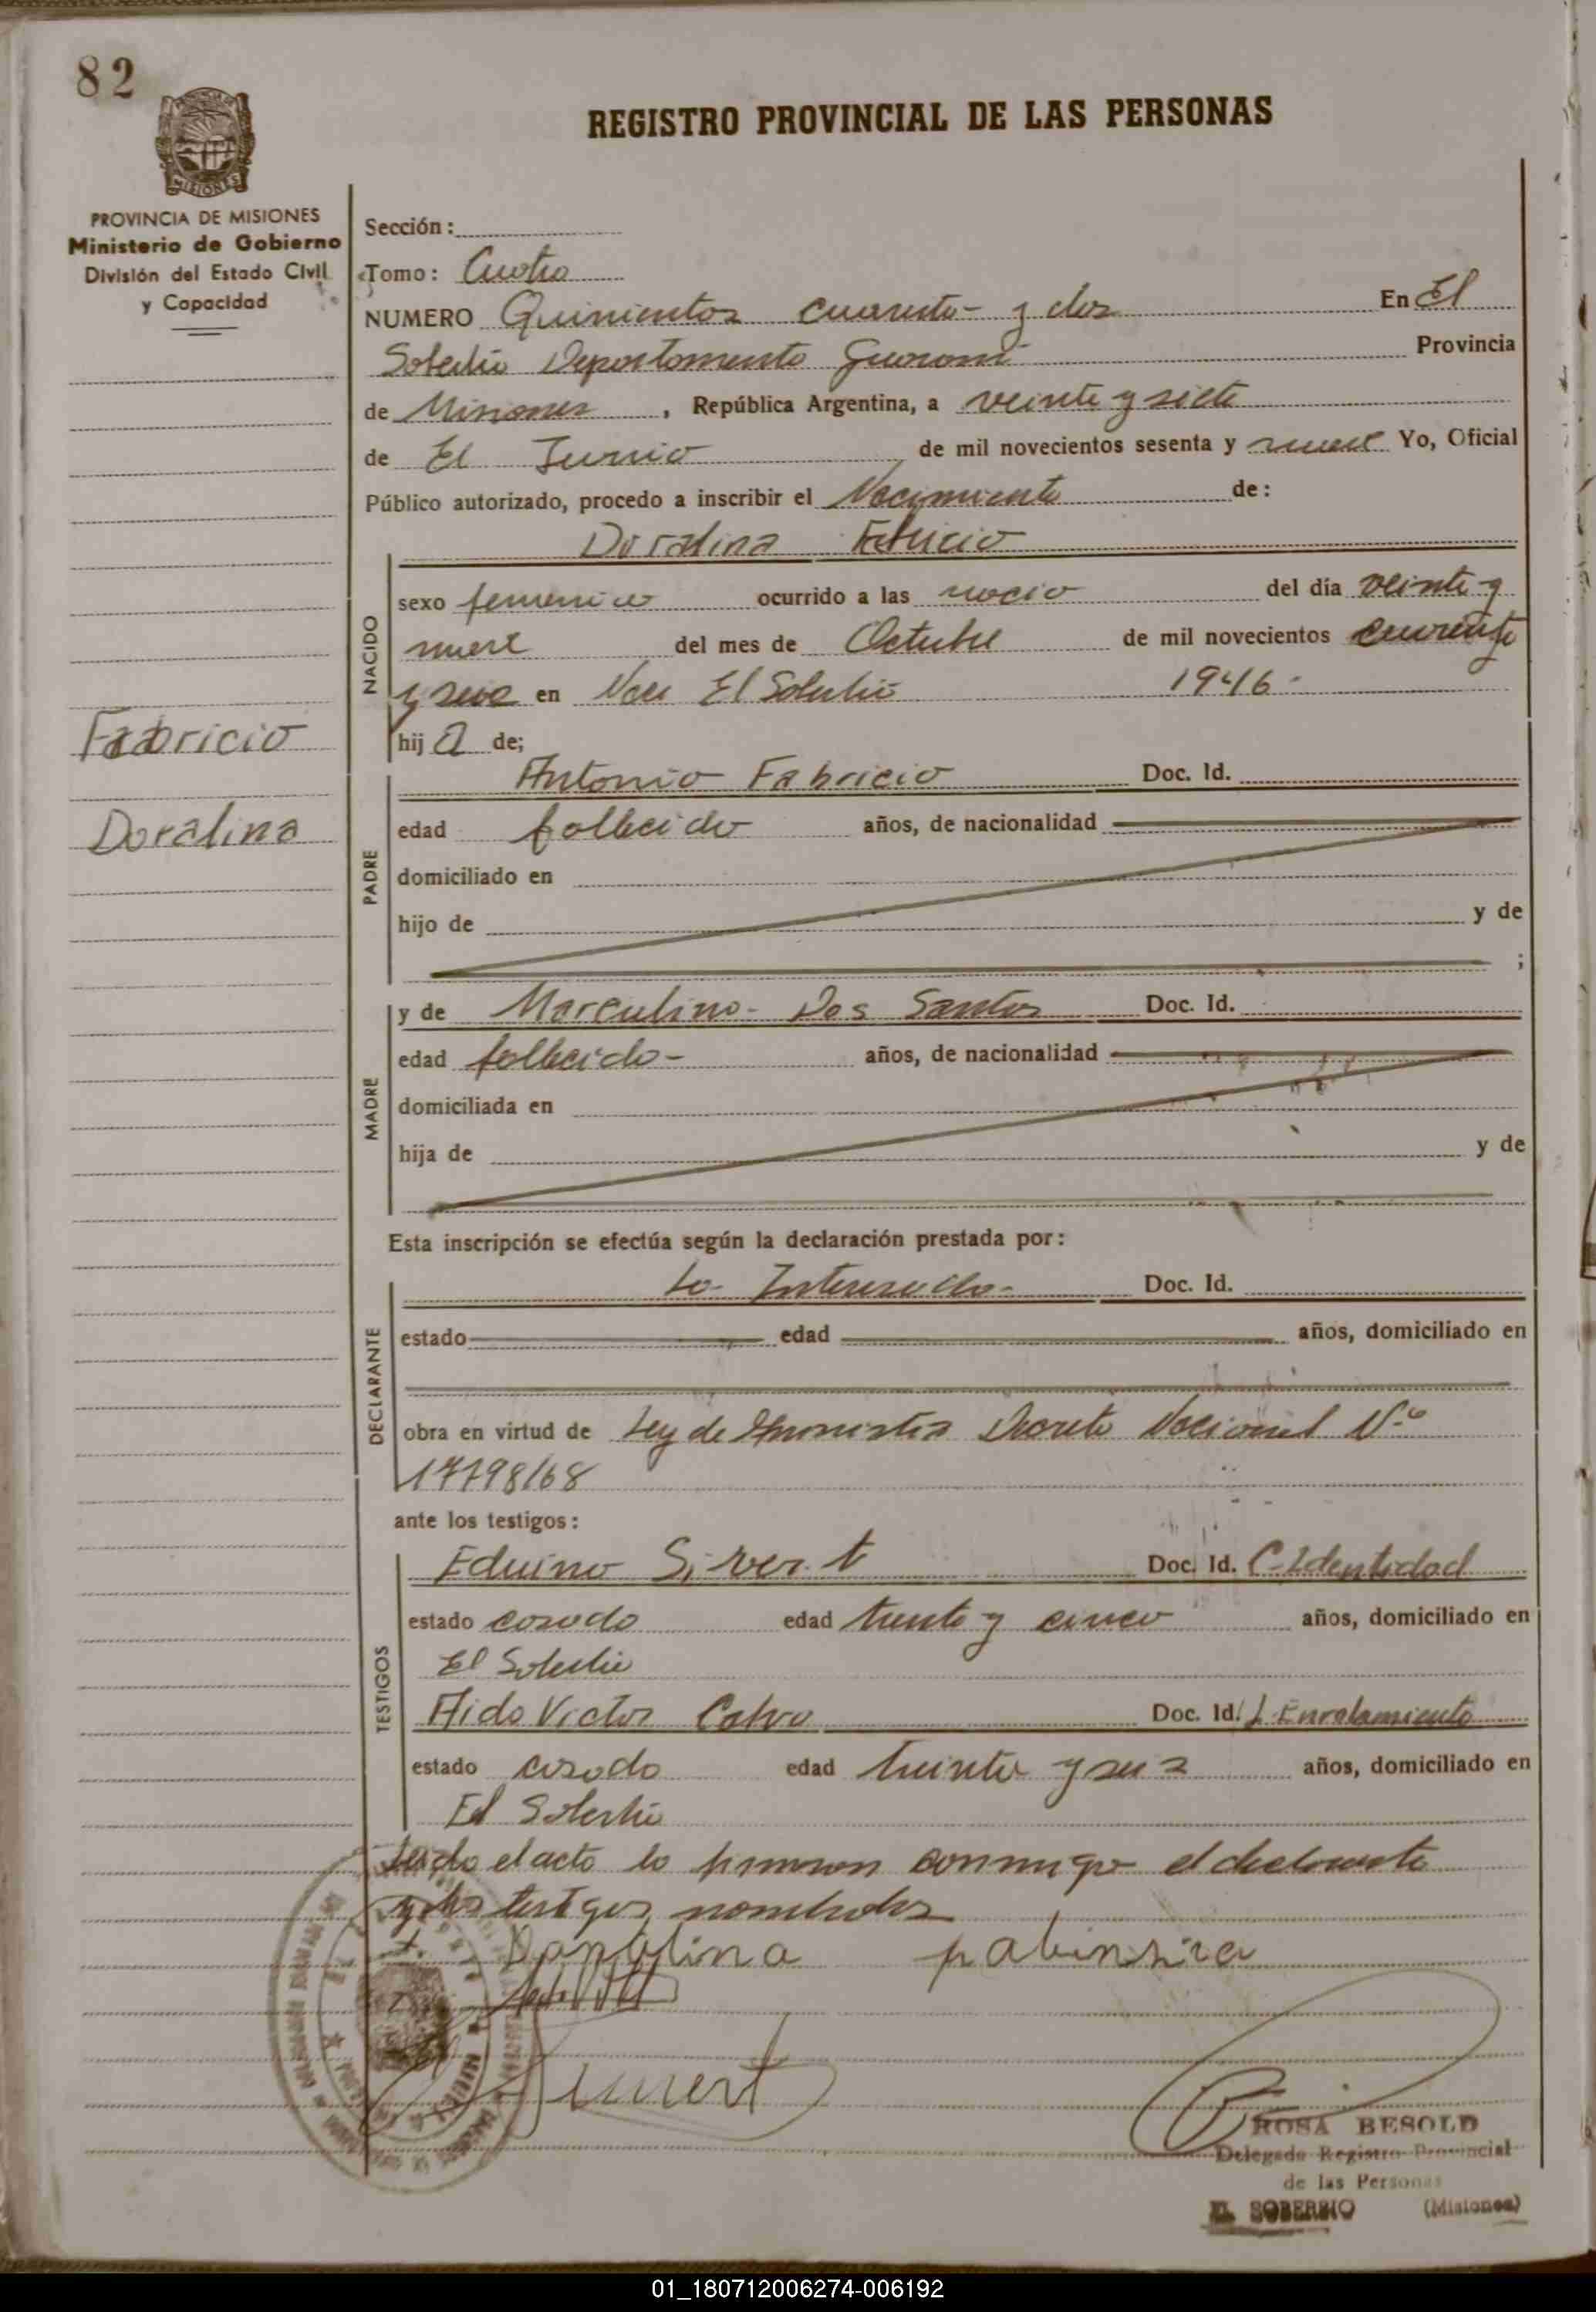 82
REGISTRO PROVINCIAL DE LAS PERSONAS
PROVINCIA DE MISIONES
Ministerio de Gobierno
División del Estado Civil
y Capacidad
Sección:
Tomo: Cuatro
NUMERO Quinientos cuarenta y dos En El
Soberbio Departamento Guaraní Provincia
de Misiones, República Argentina, a veinte y siete
de El Junio de mil novecientos sesenta y nueve Yo, Oficial
Público autorizado, procedo a inscribir el Nacimiento de:
Doralina Fabricio
NACIDO
sexo femenino ocurrido a las del día veinte y
nueve del mes de Octubre de mil novecientos cuarenta
y seis en El Soberbio 1946-
hija de;
Fabricio
Doralina
PADRE
Antonio Fabricio Doc. Id.
edad fallecido años, de nacionalidad
domiciliado en
hijo de y de
;
MADRE
y de Marculina Dos Santos Doc. Id.
edad fallecida años, de nacionalidad
domiciliada en
hija de y de
Esta inscripción se efectúa según la declaración prestada por:
DECLARANTE
La Interesada Doc. Id.
estado edad años, domiciliado en
obra en virtud de Ley de Amnistia Decreto Nacional Nº
17798/68
ante los testigos:
TESTIGOS
Eduino Sivert Doc. Id. C-Identidad
estado casado edad treinta y cinco años, domiciliado en
El Soberbio
Aido Victor Calvo Doc. Id. L. Enrolamiento
estado casado edad treinta y seis años, domiciliado en
El Soberbio
Leido el acto lo firman conmigo el declarante
y los testigos nombrados
ROSA BESOLD
Delegado Registro Provincial
de las Personas
EL SOBERBIO (Misiones)
01_180712006274-006192